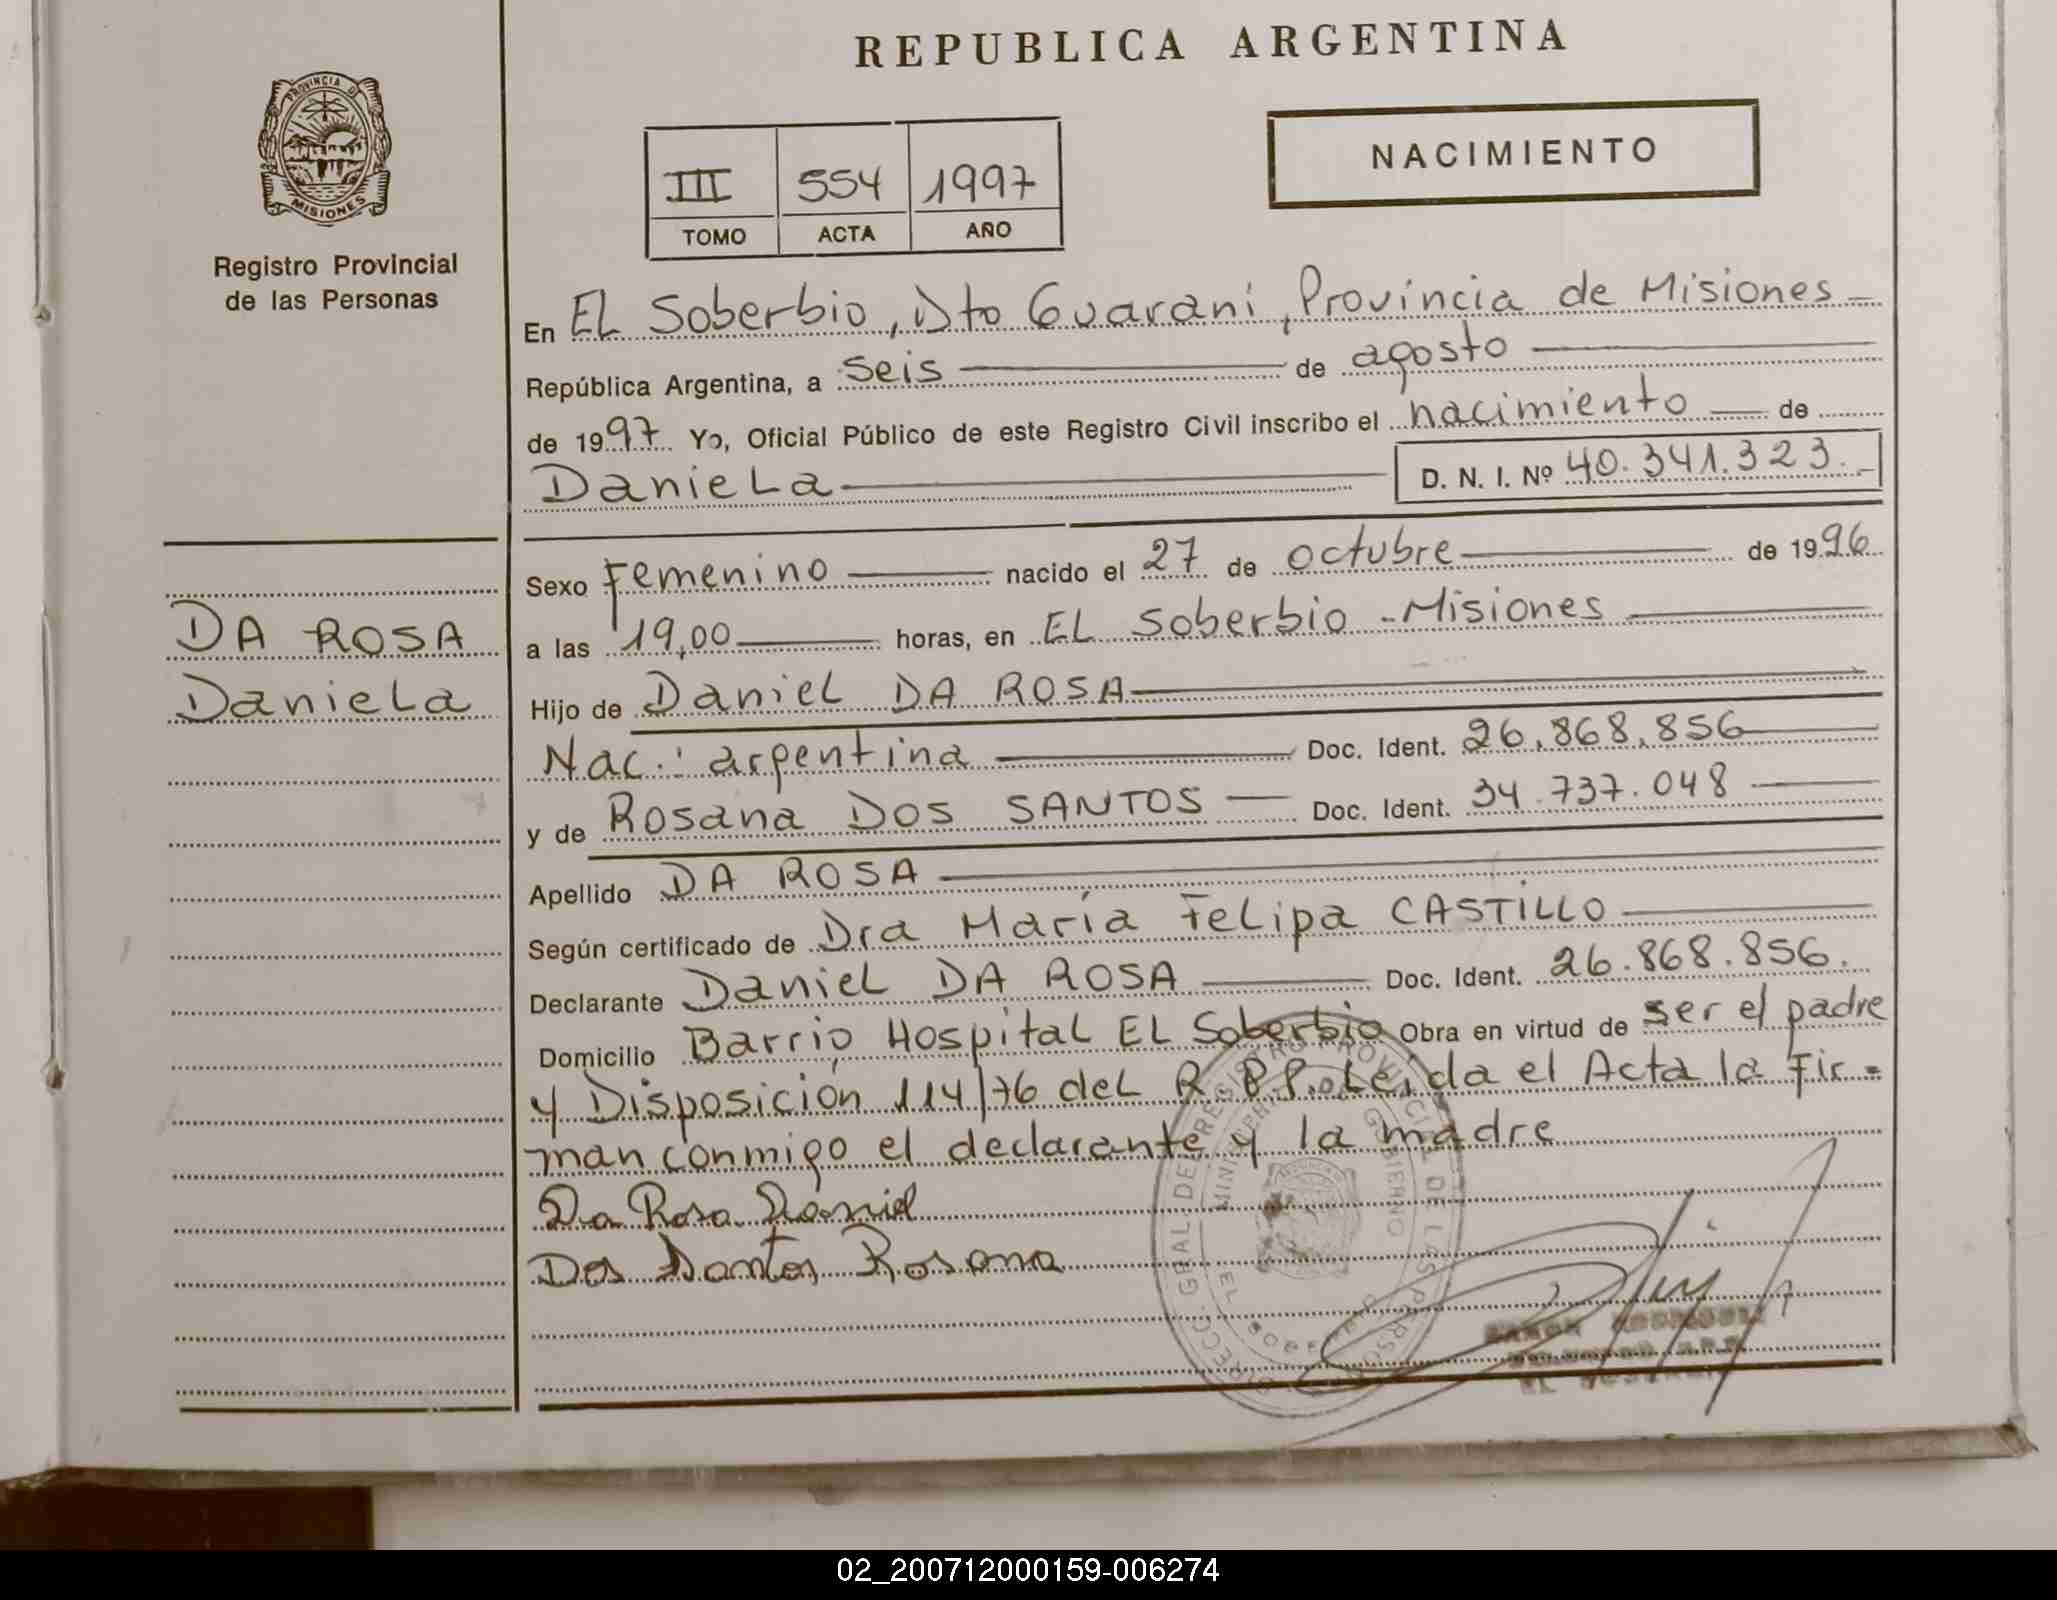 REPUBLICA ARGENTINA
PROVINCIA DE
MISIONES
Registro Provincial
de las Personas
III 554 1997
TOMO ACTA AÑO
NACIMIENTO
En EL Soberbio, Dto Guaraní, Provincia de Misiones
República Argentina, a seis de agosto
de 1997 Yo, Oficial Público de este Registro Civil inscribo el nacimiento de
Daniela D. N. I. Nº 40.341.323.
DA ROSA
Daniela
Sexo Femenino nacido el 27 de octubre de 1996
a las 19,00 horas, en EL Soberbio - Misiones
Hijo de Daniel DA ROSA
Nac.: argentina Doc. Ident. 26.868.856
y de Rosana DOS SANTOS Doc. Ident. 34.737.048
Apellido DA ROSA
Según certificado de Dra María Felipa CASTILLO
Declarante Daniel DA ROSA Doc. Ident. 26.868.856.
Domicilio Barrio Hospital EL Soberbio Obra en virtud de ser el padre
y Disposición 114/76 del R.P.P. Leída el Acta la fir=
man conmigo el declarante y la madre
Da Rosa Daniel
Dos Santos Rosana
DIRECC. GRAL. DE REGISTRO PROVINCIAL DE LAS PERSONAS
MINISTERIO DE GOBIERNO
EL SOBERBIO
02_200712000159-006274